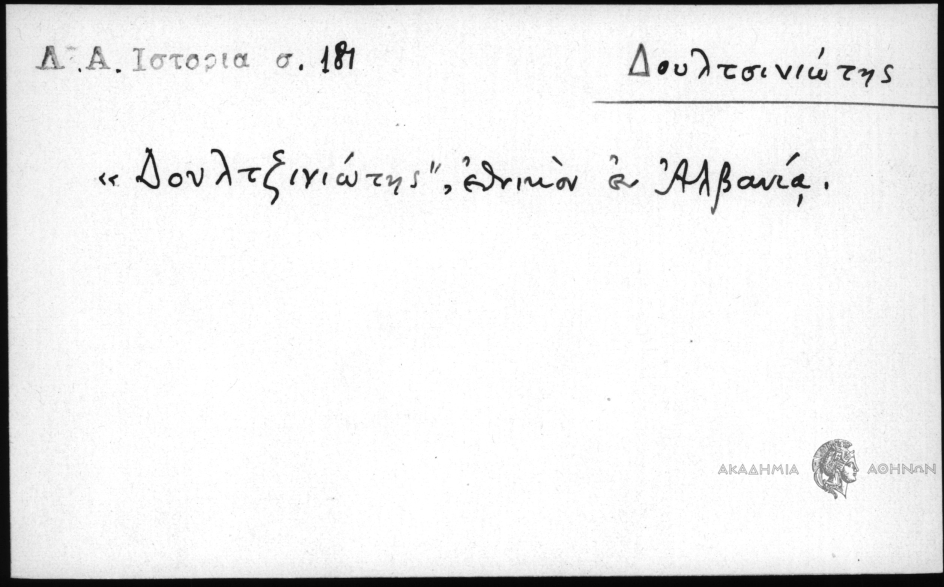 Δ.Α. Ιστορια σ. 181
Δουλτσινιώτης
« Δουλτζινιώτης", ἐθνικὸν ἐν Ἀλβανίᾳ.
ΑΚΑΔΗΜΙΑ ΑΘΗΝΩΝ